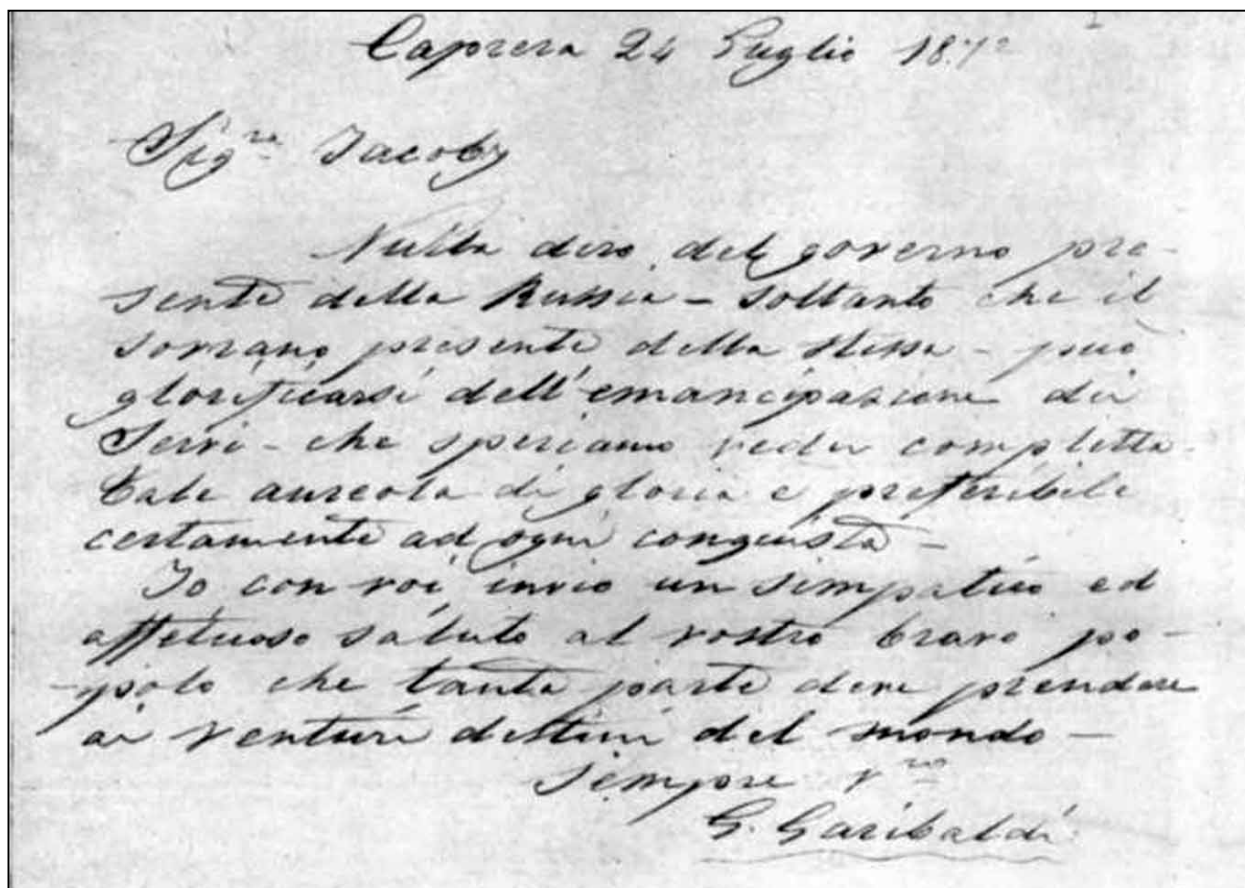 Caprera 24 Luglio 1872
Sig.re Jacoby
Nulla dirò del governo pre-
sente della Russia - soltanto che il
sovrano presente della stessa - può
glorificarsi dell'emancipazione dei
Servi - che speriamo veder completta.
Tale aureola di gloria è preferibile
certamente ad ogni conquista -
Io con voi invio un simpatico ed
affetuoso saluto al vostro bravo po-
polo che tanta parte deve prendere
ai venturi destini del mondo -
Sempre V.ro
G. Garibaldi